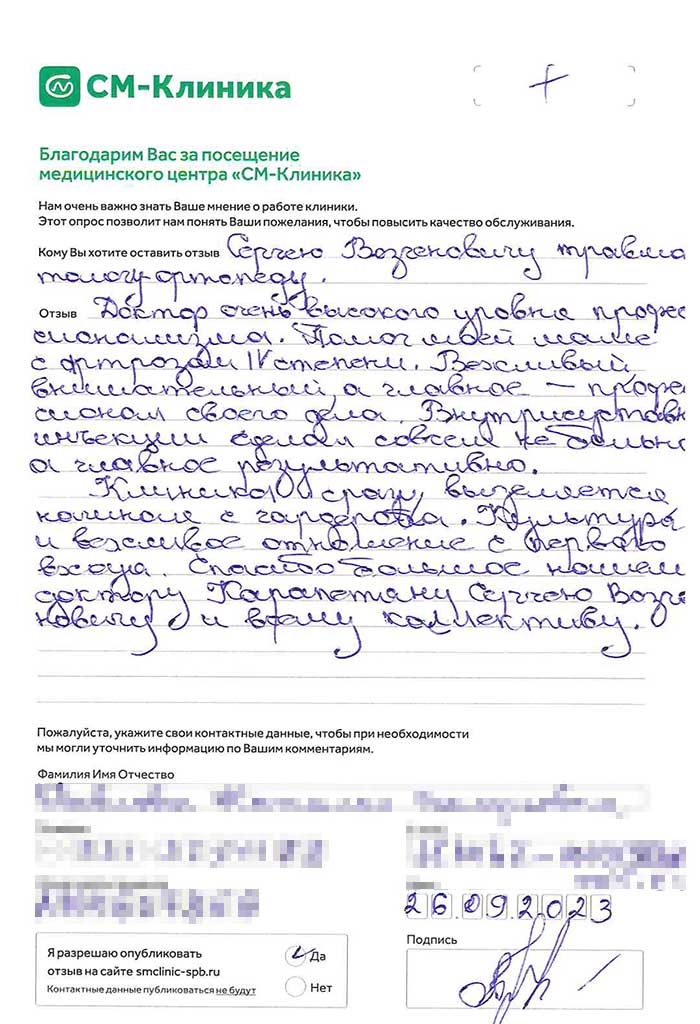 СМ-Клиника
+
Благодарим Вас за посещение
медицинского центра «СМ-Клиника»
Нам очень важно знать Ваше мнение о работе клиники.
Этот опрос позволит нам понять Ваши пожелания, чтобы повысить качество обслуживания.
Кому Вы хотите оставить отзыв Сергею Возгеновичу травма
тологу-ортопеду.
Отзыв Доктор очень высокого уровня профе
сионализма. Помог моей маме
с артрозам IV степени. Вежливый
внимательный, а главное – профе
сионал своего дела. Внутрисуставн
инъекции сделал совсем не больн
а главное результативно.
Клиника сразу выделяется
начиная с гардероба. Культура
и вежливое отношение с первого
входа. Спасибо большое нашем
доктору Карапетяну Сергею Возге
новичу и всему коллективу.
Пожалуйста, укажите свои контактные данные, чтобы при необходимости
мы могли уточнить информацию по Вашим комментариям.
Фамилия Имя Отчество
26.09.2023
Я разрешаю опубликовать
отзыв на сайте smclinic-spb.ru
Контактные данные публиковаться не будут
Да
Нет
Подпись